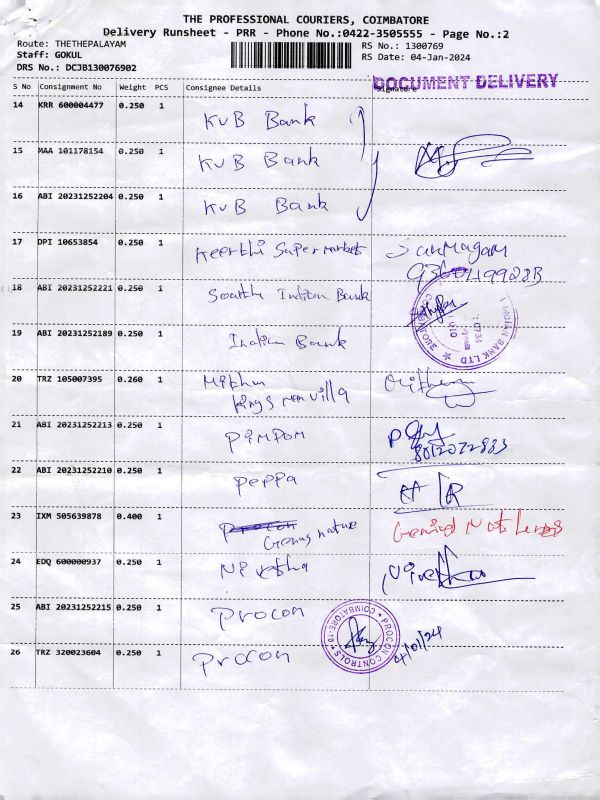 THE PROFESSIONAL COURIERS, COIMBATORE
Delivery Runsheet - PRR - Phone No.:0422-3505555 - Page No.:2
Route: THETHEPALAYAM
Staff: GOKUL
DRS No.: DCJB130076902
RS No.: 1300769
RS Date: 04-Jan-2024
DOCUMENT DELIVERY
S No Consignment No Weight PCS Consignee Details Signature
14 KRR 600004477 0.250 1 KVB Bank
15 MAA 101178154 0.250 1 KVB Bank
16 ABI 20231252204 0.250 1 KVB Bank
17 DPI 10653854 0.250 1 Keerthi Super Market
18 ABI 20231252221 0.250 1 South Indian Bank
19 ABI 20231252189 0.250 1 Indian Bank
INDIAN BANK LTD
20 TRZ 105007395 0.260 1 Mithun
Kings Man Villa
21 ABI 20231252213 0.250 1 PimPom
22 ABI 20231252210 0.250 1 Peppa
23 IXM 505639878 0.400 1 Procon
Genius nature
24 EDQ 600000937 0.250 1 Nivetha
25 ABI 20231252215 0.250 1 Procon
26 TRZ 320023604 0.250 1 Procon
PROCON CONTROLS COIMBATORE
4/01/24